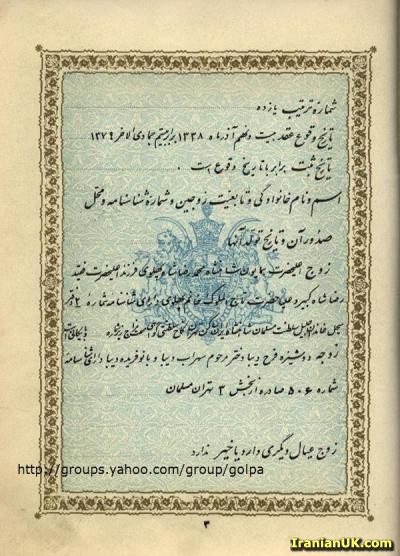 شمارهٔ ترتیب یازده
تاریخ وقوع عقد بیست و نهم آذر ماه ۱۳۳۸ برابر بیستم جمادی‌الاخر ۱۳۷۹
تاریخ ثبت برابر با تاریخ وقوع است .
اسم و نام خانوادگی و تابعیت زوجین و شمارهٔ شناسنامه و محل
صدور آن و تاریخ تولد آنها
زوج اعلیحضرت همایون شاهنشاه محمد رضا شاه پهلوی فرزند اعلیحضرت فقید
رضا شاه کبیر و علیاحضرت تاج الملوک خانم پهلوی دارای شناسنامه شمارهٔ ۲ دفتر
سجل خاندان جلیل سلطنت مسلمان شاهنشاه ایران
زوجه دوشیزه فرح دیبا دختر مرحوم سهراب دیبا و بانو فریده دیبا دارای شناسنامه
شماره ۵۰۶ صادره از بخش ۳ تهران مسلمان
زوج عیال دیگری دارد یا خیر ندارد
http://groups.yahoo.com/group/golpa
۳
IranianUK.com